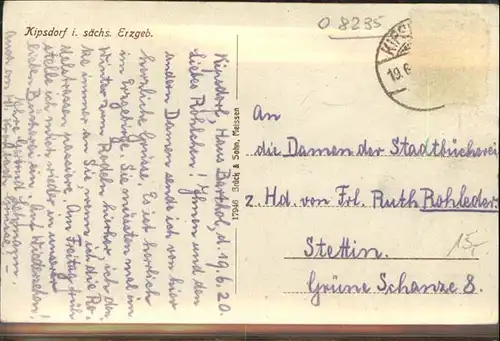 Kipsdorf i. sächs. Erzgeb.
O 8235
KIPS
19.6
Kipsdorf, Haus Barthol, d. 19.6.20.
Liebes Rohlichen! Ihnen und den
andern Damen sende ich von hier
herzliche Grüsse. Es ist herrlich
im Erzgebirge. Sie müssten mal im
Winter zum Rodeln hierher, ich den-
ke immer an Sie, wenn ich die Ro-
delstrassen passiere. Am Freitag früh
stelle ich mich wieder in unserer
lieben Bücherei ein. Auf Wiedersehen!
Ihre Gertrud
Auch von
Grüsse
17246 Brück & Sohn, Meissen
An
die Damen der Stadtbücherei
z. Hd. von Frl. Ruth Rohleder
Stettin.
Grüne Schanze 8.
15,-